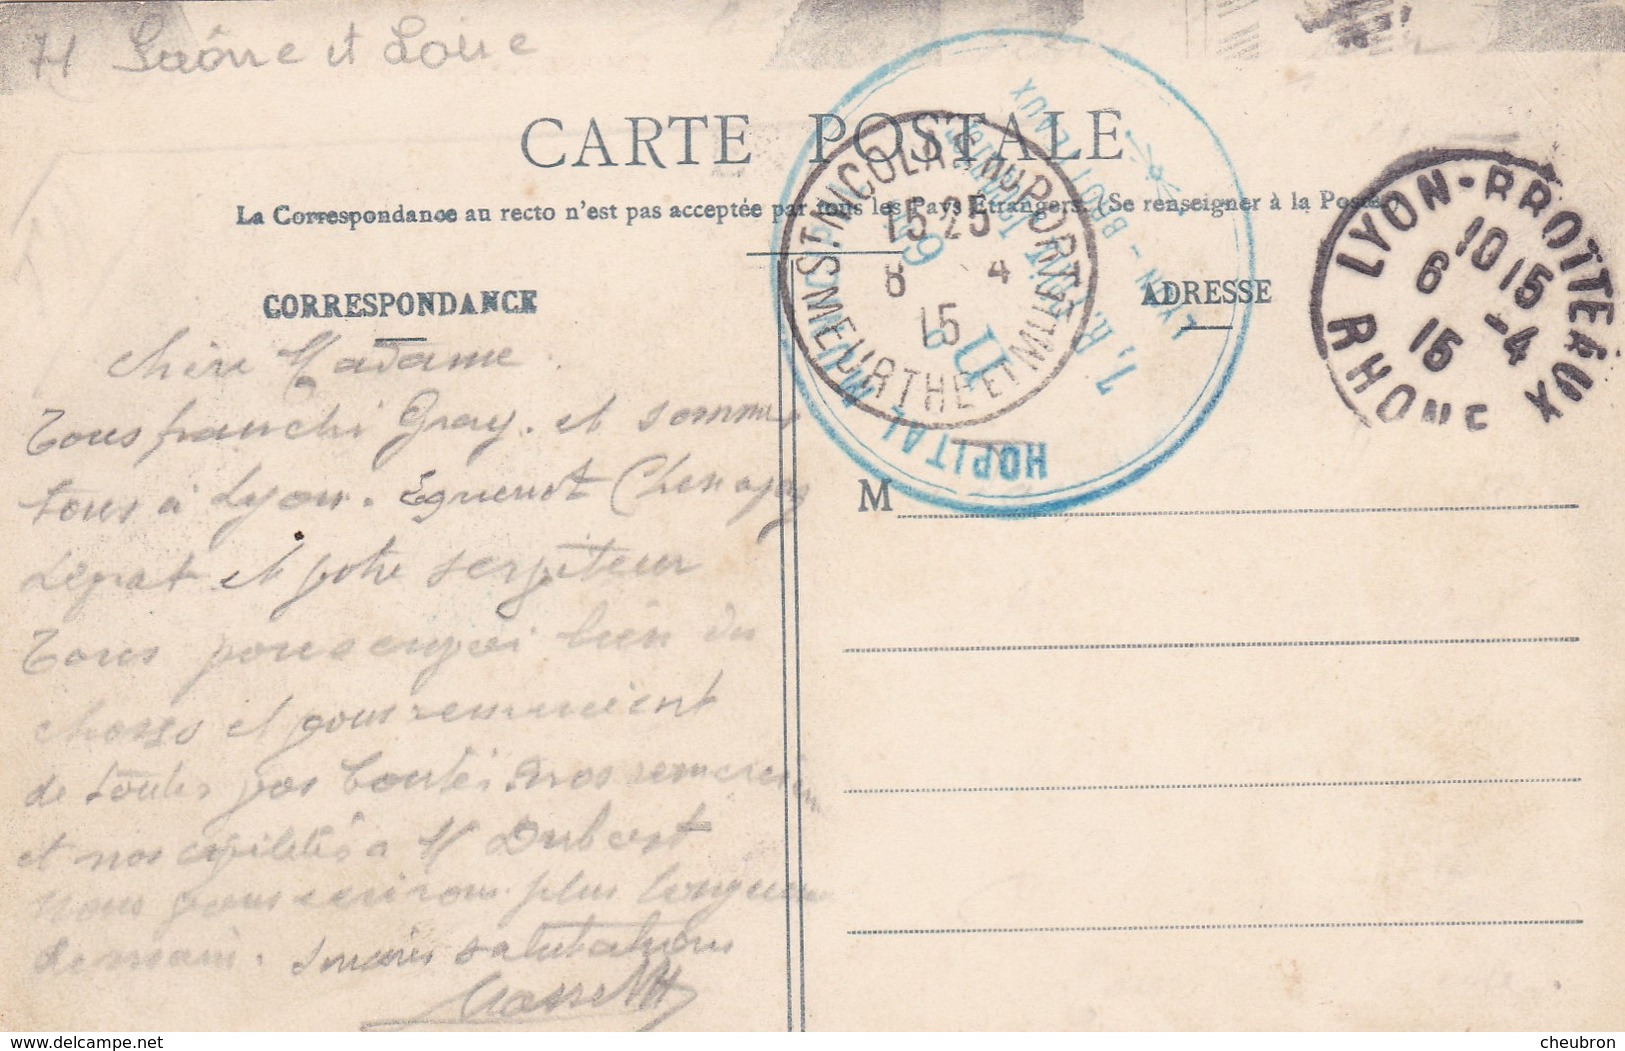 71 Saône et Loire
CARTE POSTALE
La Correspondance au recto n'est pas acceptée par tous les Pays Étrangers. (Se renseigner à la Poste.)
CORRESPONDANCE
ADRESSE
M
ST NICOLAS DU PORT
MEURTHE ET MLLE
15 25
8 4
15
LYON-BROTTEAUX
RHONE
10 15
6 -4
15
HOPITAL
LYON - BROTTEAUX
Chère Madame
Tous franchi Gray. et somme
tous à Lyon. Eguenot Chenagay
Legrat et votre serviteur
Tous vous envoi bien du
choses et vous remercient
de toutes vos bontés
et nos civilités à M Dubost
Nous vous écrirons plus longuement
demain. Sincères salutations
cheubron
delcampe.net